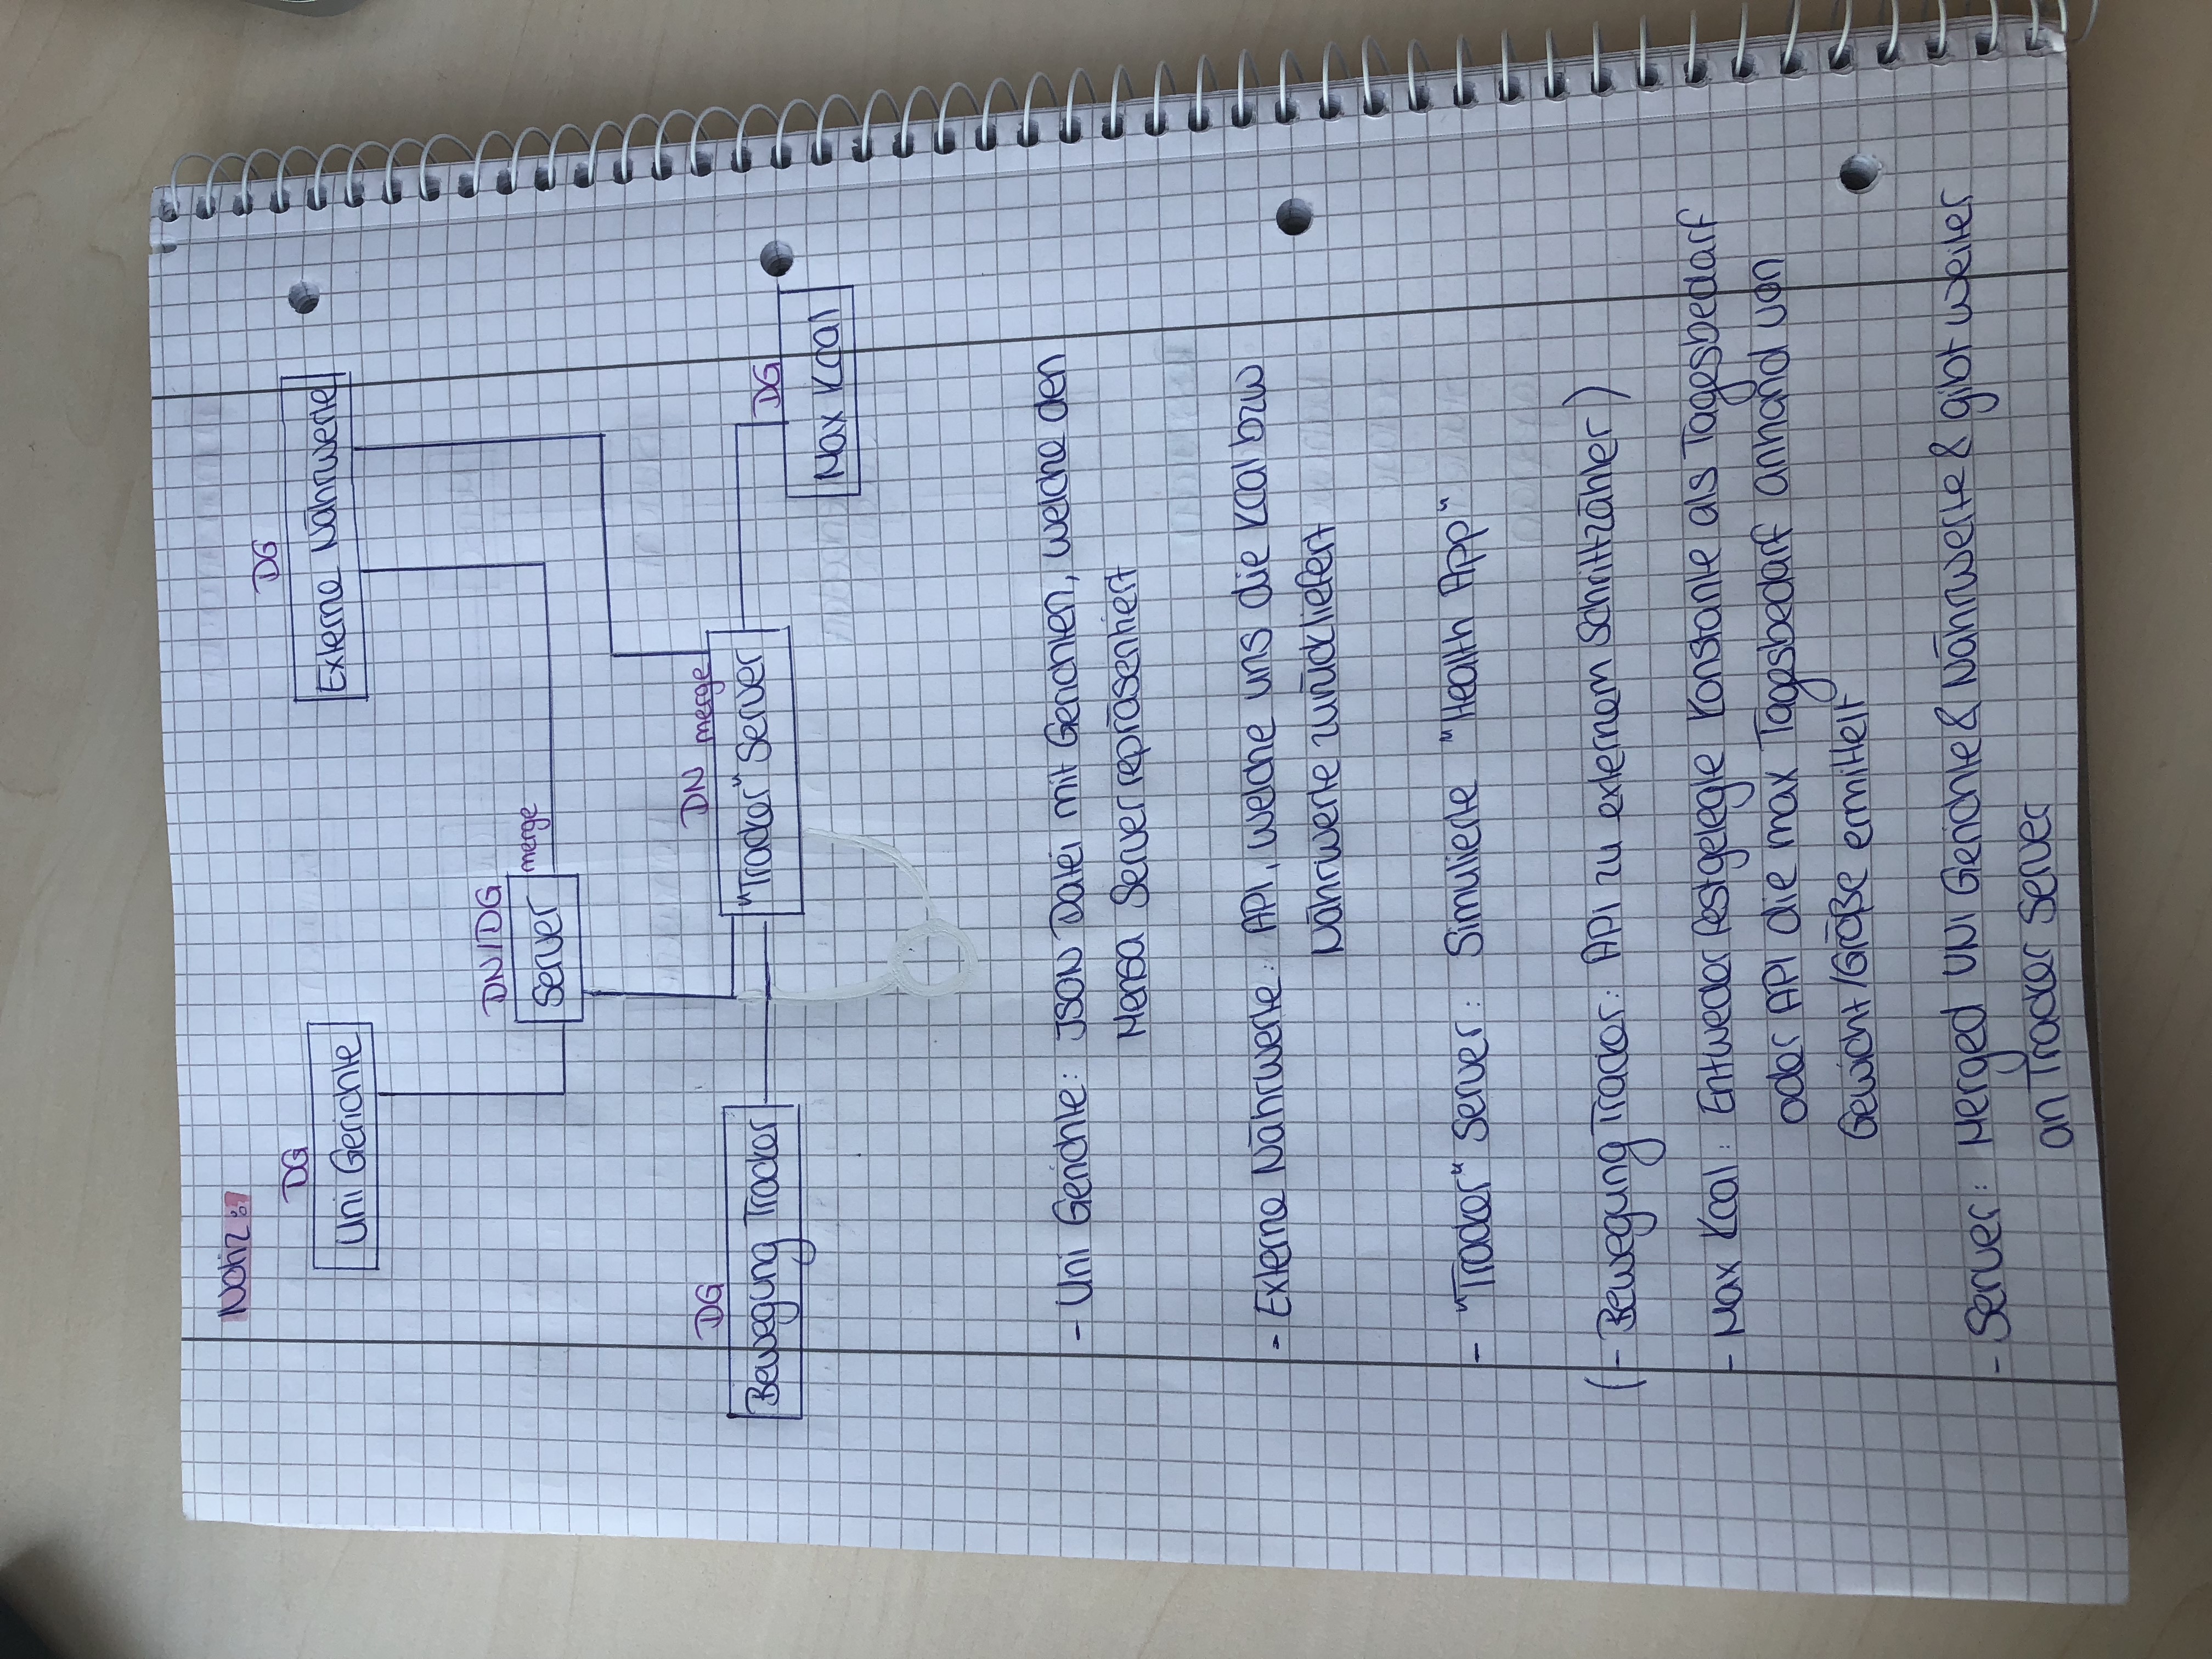 Notiz:
DG
DG
Uni Gerichte
Externe Nährwerte
DN/DG
Server
merge
DG
DN merge
Bewegung Tracker
"Tracker" Server
DG
Max Kcal
- Uni Gerichte: JSON Datei mit Gerichten, welche den
Mensa Server repräsentiert
- Externe Nährwerte: API, welche uns die Kcal bzw
Nährwerte zurückliefert
- "Tracker" Server: Simulierte "Health App"
(- Bewegung Tracker: API zu externem Schrittzähler)
- Max Kcal: Entweder festgelegte Konstante als Tagesbedarf
oder API die max Tagesbedarf anhand von
Gewicht/Größe ermittelt
- Server: Merged UNI Gerichte & Nährwerte & gibt weiter
an Tracker Server